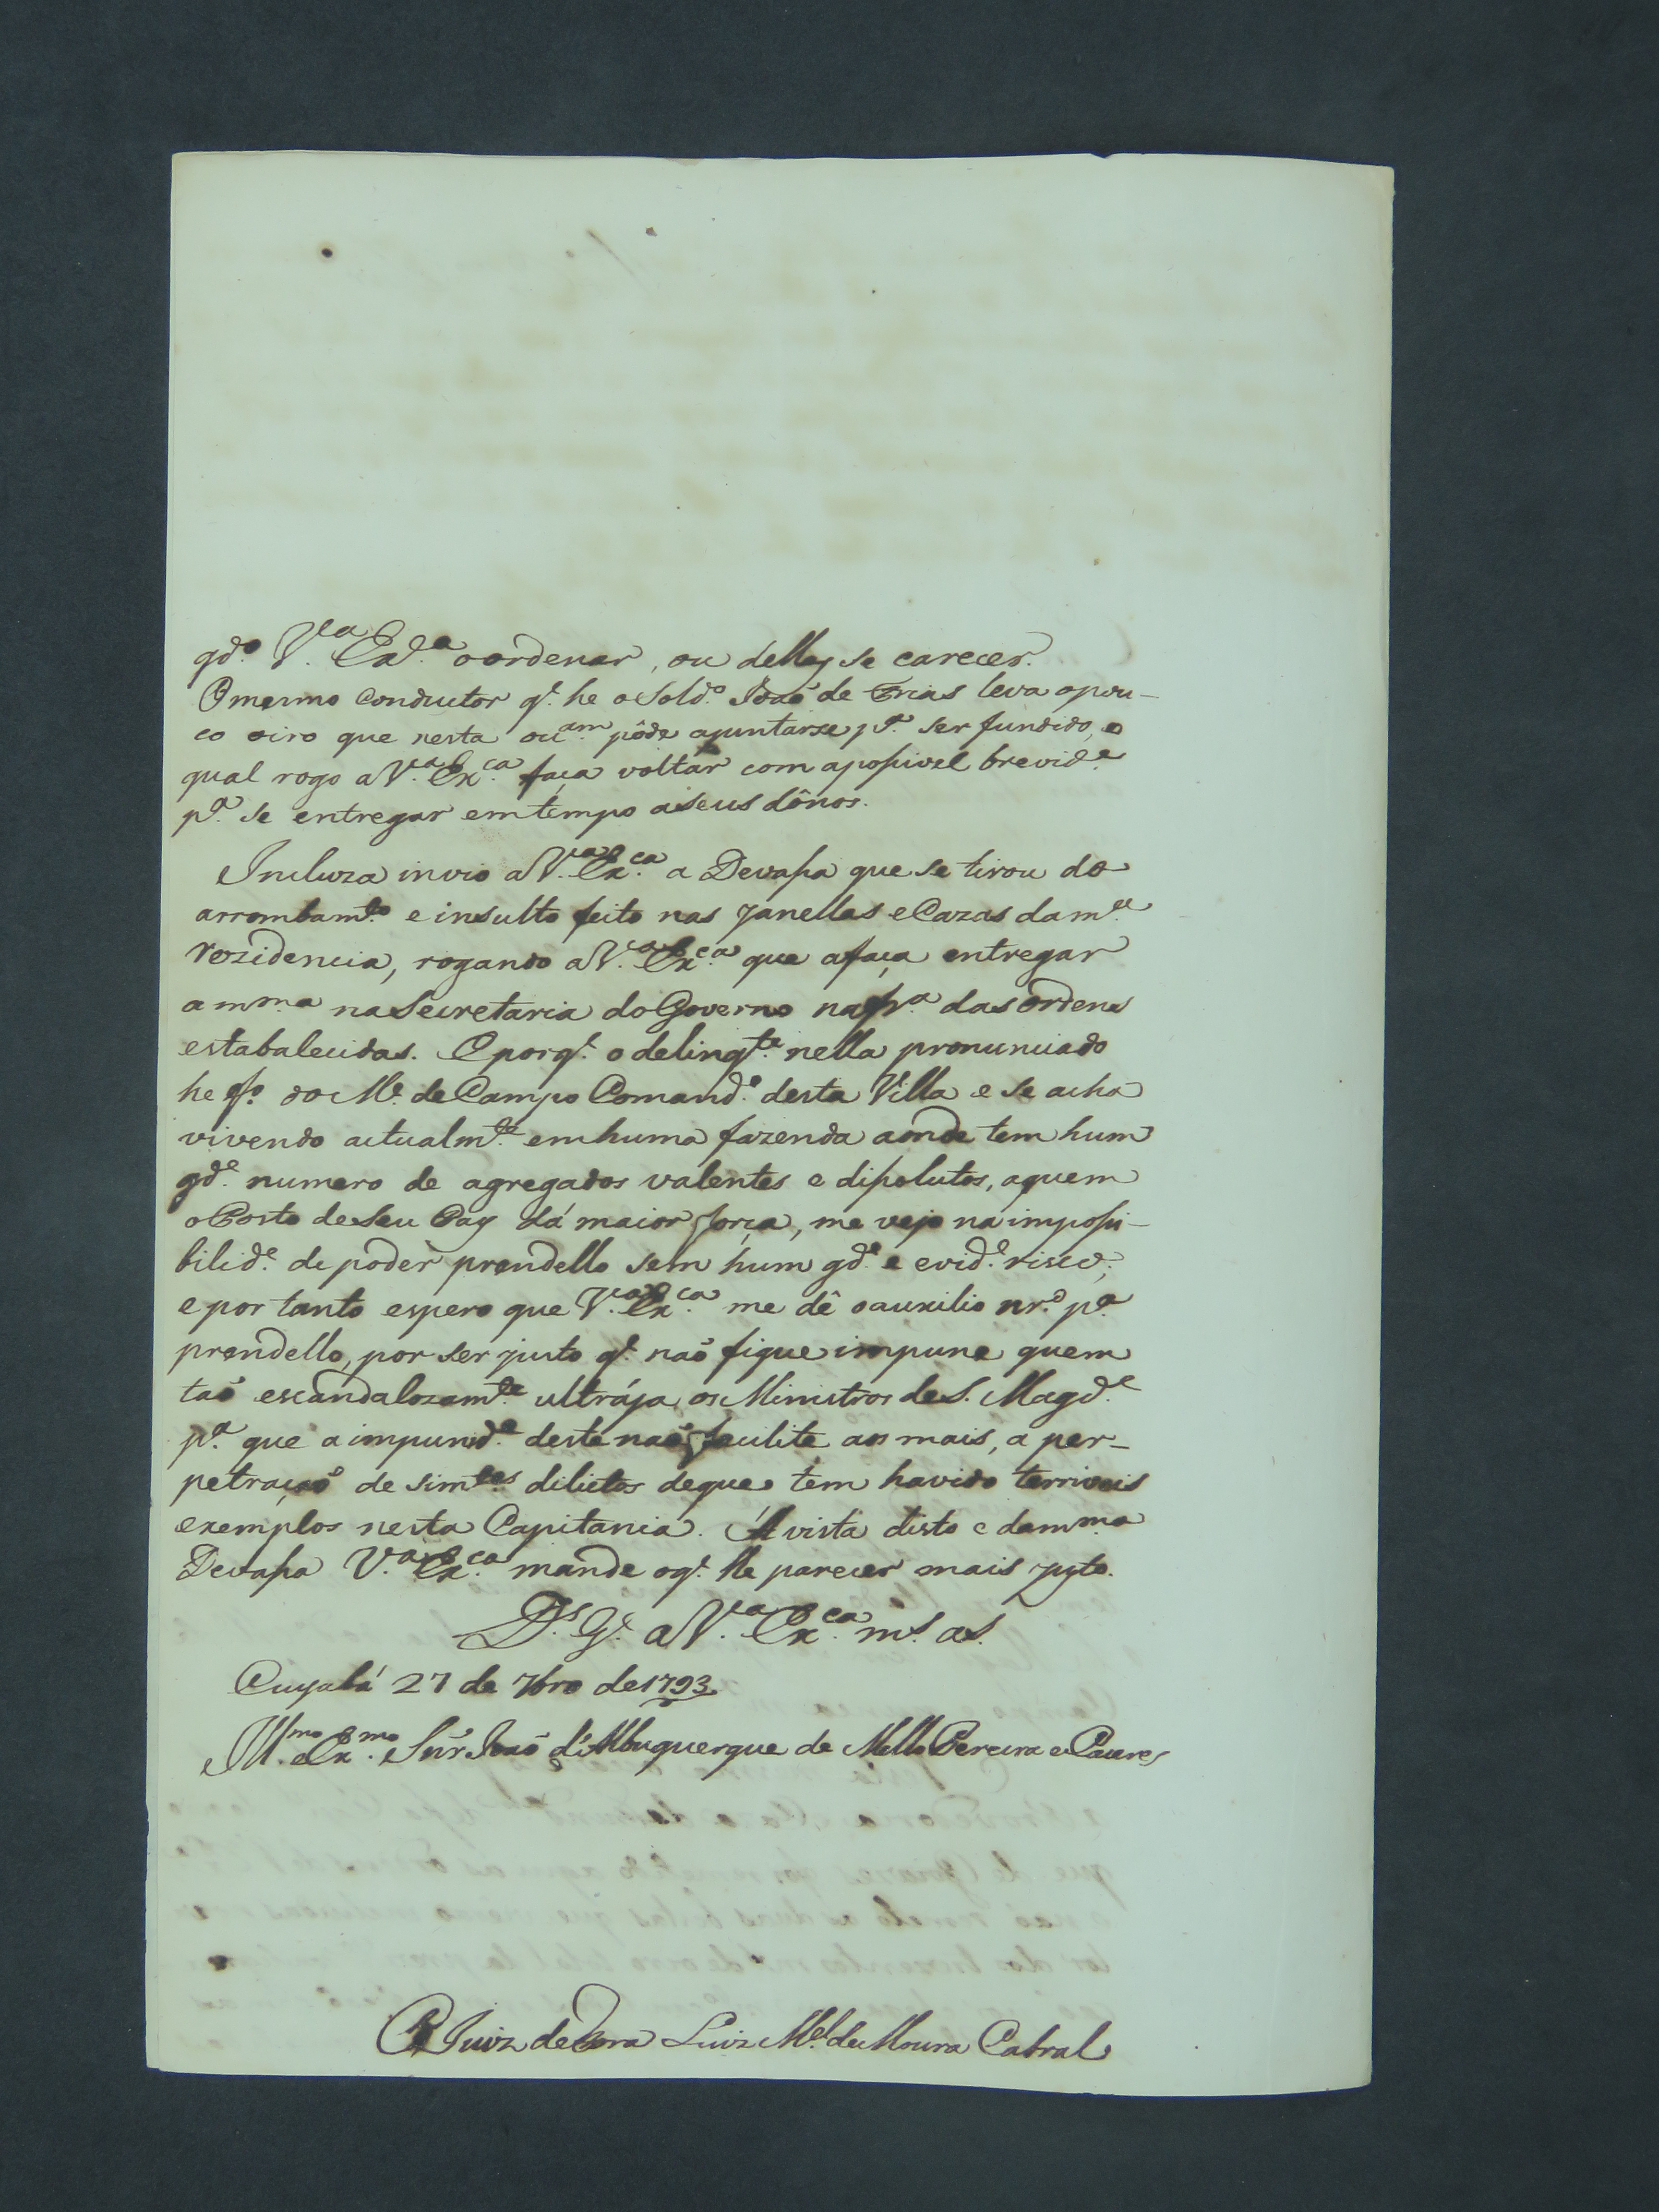 qd.º V.ª Ex.ª o ordenar, ou delles se carecer.
O mesmo Conductor q. he o Sold.º João de Frias leva o pou-
co oiro que nesta oc.am pôde ajuntarse p.ª ser fundido, o
qual rogo a V.ª Ex.ca faça voltar com a possivel brevid.e
p.ª se entregar em tempo a seus dônos.
Incluza invio a V.ª Ex.ca a Devassa que se tirou do
arrombam.to e insulto feito nas Janellas e Cazas da m.ª
rezidencia, rogando a V.ª Ex.ca que a faça entregar
a mm.a na Secretaria do Governo na fr.ª das ordens
estabalecidas. E porq. o delinq.te nella pronunciado
he f.º do M.e de Campo Comand.e desta Villa e se acha
vivendo actualm.te em huma fazenda aonde tem hum
gd.e numero de agregados valentes e dissolutos, a quem
o Posto de seu Pay dá maior força, me vejo na impossi-
bilid.e de poder prendello sem hum gd.e e evid.e risco;
e por tanto espero que V.ª Ex.ca me dê o auxilio nr.º p.ª
prendello, por ser justo q. não fique impune quem
tão escandalozam.te ultrája os Ministros de S. Magd.e
p.ª que a impunid.e deste não facilite aos mais, a per-
petração de sim.tes dilictos de que tem havido terriveis
exemplos nesta Capitania. Á vista disto e da mm.a
Devassa V.ª Ex.ca mande o q. lhe parecer mais justo.
D.s G.e a V.ª Ex.ca m.s a.s
Cuyabá 27 de 7bro de 1793.
Ill.mo e Ex.mo Snr João d'Albuquerque de Mello Pereira e Caceres
O Juiz de Fora Luiz M.el de Moura Cabral